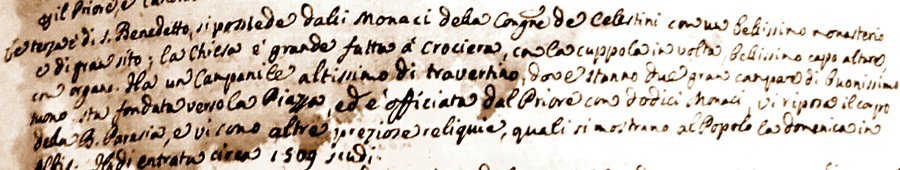 il Priore e
La terza è di S. Benedetto, si possede dalli Monaci della Congne de Celestini con un bellissimo monasterio
e di gran sito; la Chiesa e' grande fatta à Crociera, con la cuppola in volta, bellissimo capo altare,
con organo. Ha un Campanile altissimo di travertino, dove stanno due gran campane di buonissimo
suono. sta fondata verso la Piazza, ed è officiata dal Priore con dodici Monaci, vi riposa il corpo
della B. Parasia, e vi sono altre preziose reliquie, quali si mostrano al Popolo la domenica in
Albis. Ha di entrata circa 1509 scudi.